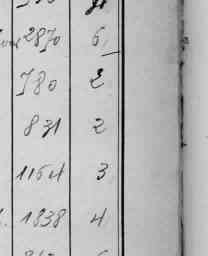 2870 6
780 2
831 2
1164 3
1838 4